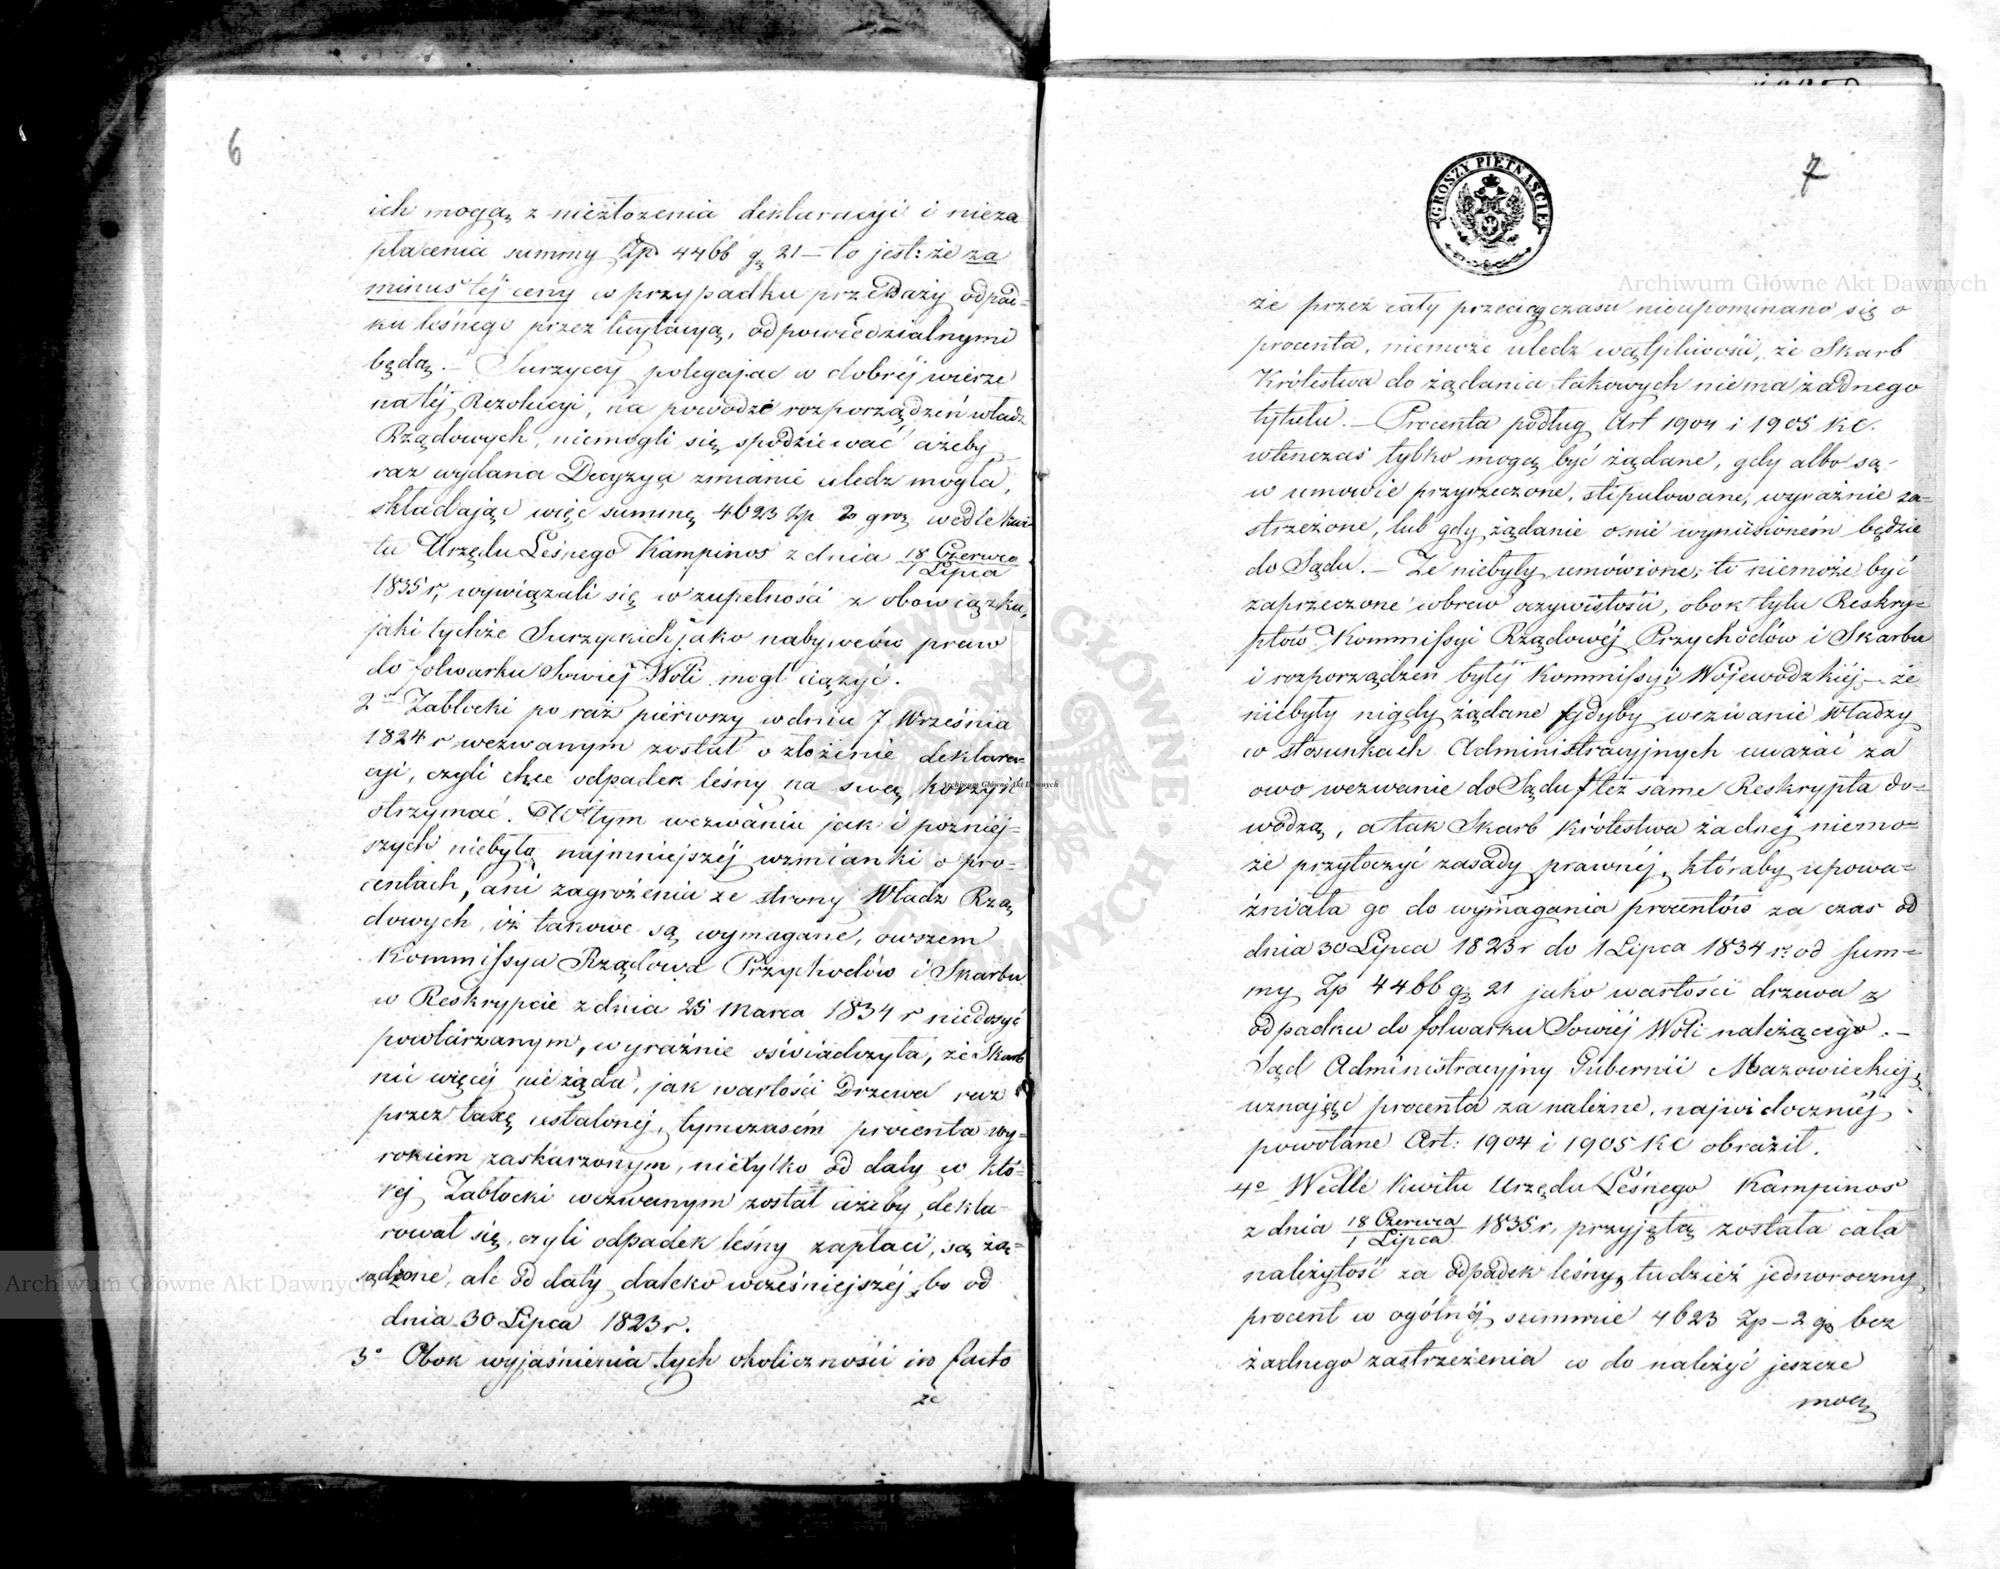 6
ich mogą z niezłożenia deklaracyi i nieza
płacenia summy Zp 4466 g. 21 – to jest: że za
minus tej ceny w przypadku przedaży odpad-
ku leśnego przez licytacyą, odpowiedzialnymi
będą. – Surzyccy polegając w dobréj wierze
na téj Rezolucyi, na powodzie rozporządzeń władz
Rządowych, niemogli się spodziewać ażeby
raz wydana Decyzya zmianie uledz mogła,
składając więc summę 4623 Zp 2 grosz wedle kwi
tu Urzędu Leśnego Kampinos z dnia 18 Czerwca / 1 Lipca
1835 r, wywiązali się w zupełności z obowiązku,
jaki tychże Surzyckich jako nabywców praw
do folwarku Sowiej Woli mógł ciążyć.
2o Zabłocki po raz pierwszy w dniu 7 Września
1824 r wezwanym został o złożenie deklara-
cyi, czyli chce odpadek leśny na swą korzyść
otrzymać. W tym wezwaniu jak i poźniej-
szych niebyło najmniejszéj wzmianki o pro-
centach, ani zagrożenia ze strony Władz Rzą
dowych, iż takowe są wymagane, owszem
Kommissya Rządowa Przychodów i Skarbu
w Reskrypcie z dnia 25 Marca 1834 r niedosyć
powtarzanym, wyraźnie oświadczyła, że Skarb
nic więcéj nie żąda, jak wartości Drzewa raz
przez taxę ustalonéj, tymczasem procenta wy-
rokiem zaskarzonym, nietylko od daty w któ-
réj Zabłocki wezwanym został ażeby dekla-
rował się, czyli odpadek leśny zapłaci, są żą-
sądzone, ale od daty daleko wcześniejszéj, bo od
dnia 30 Lipca 1823 r.
3o Obok wyjaśnienia tych okoliczności in facto
że
GROSZY PIĘTNAŚCIE
7
że przez cały przeciąg czasu nieupominano się o
procenta, niemoże uledz wątpliwości, że Skarb
Królestwa do żądania takowych niema żadnego
tytułu. – Procenta podług Art 1904 i 1905 KC.
wtenczas tylko mogą być żądane, gdy albo są
w umowie przyrzeczone, stipulowane, wyraźnie za-
strzeżone, lub gdy żądanie o nie wyniesionem będzie
do Sądu. – Że niebyły umówione, to niemoże być
zaprzeczone wbrew oczywistości, obok tylu Reskry-
ptów Kommissyi Rządowéj Przychodów i Skarbu
i rozporządzeń byłéj Kommissyi Wojewódzkiéj – że
niebyły nigdy żądane gdyby wezwanie Władzy
w stosunkach Administracyjnych uważać za
owo wezwanie do Sądu też same Reskrypta do-
wodzą, a tak Skarb Królestwa żadnej niemo-
że przytoczyć zasady prawnéj, któraby upowa-
żniała go do wymagania procentów za czas od
dnia 30 Lipca 1823 r do 1 Lipca 1834 r: od sum-
my Zp 4466 g. 21 jako wartości drzewa z
odpadku do folwarku Sowiéj Woli należącego. –
Sąd Administracyjny Gubernii Mazowieckiéj,
uznając procenta za należne, najwidoczniéj
powołane Art: 1904 i 1905 KC obraził.
4o Wedle kwitu Urzędu Leśnego Kampinos
z dnia 18 Czerwca / 1 Lipca 1835 r, przyjętą została cała
należytość za odpadek leśny, tudzież jednoroczny
procent w ogólnéj summie 4623 Zp – 2 g. bez
żadnego zastrzeżenia co do należyć jeszcze
Archiwum Główne Akt Dawnych
Archiwum Główne Akt Dawnych
Archiwum Główne Akt Dawnych